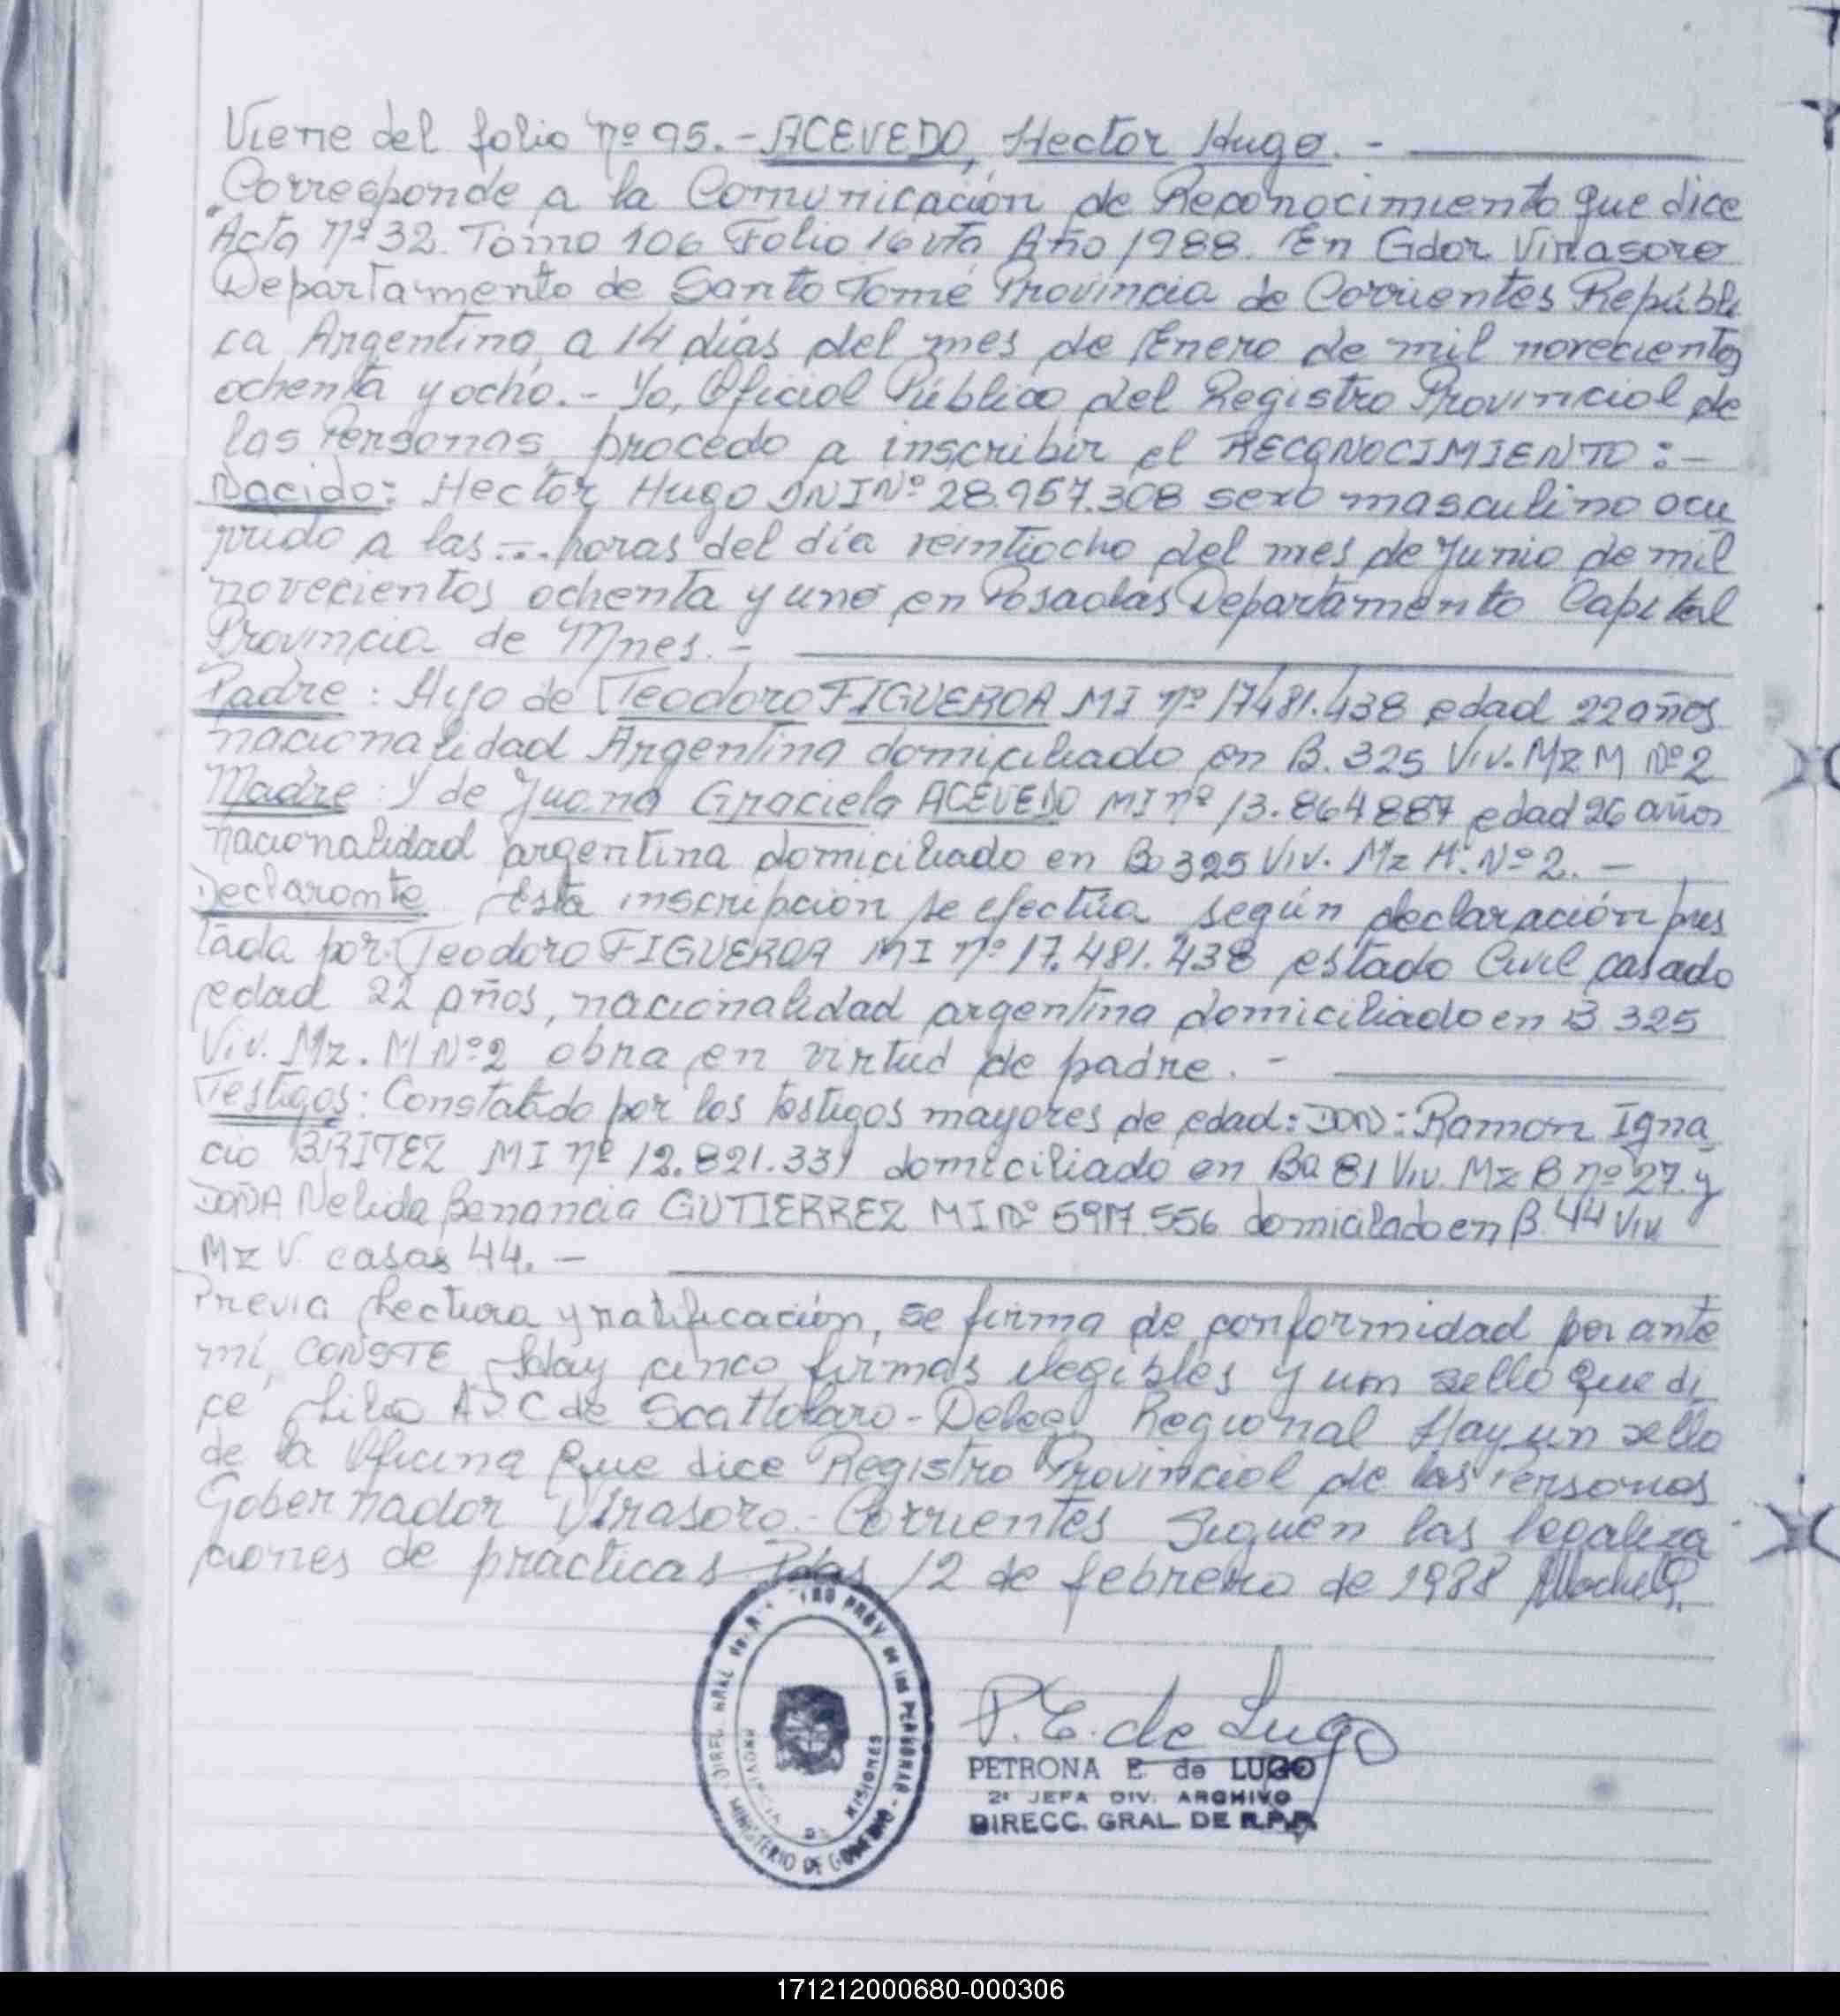 Viene del folio nº 95.- ACEVEDO, Hector Hugo. -
Corresponde a la Comunicación de Reconocimiento que dice
Acta nº 32. Tomo 106 Folio 16 vta Año 1988. En Gdor Virasoro
Departamento de Santo Tomé Provincia de Corrientes Repúbli
ca Argentina, a 14 días del mes de Enero de mil novecientos
ochenta y ocho.- Yo, Oficial Público del Registro Provincial de
las Personas, procedo a inscribir el RECONOCIMIENTO: -
Nacido: Hector Hugo DNI Nº 28.957.308 sexo masculino ocu
rrido a las -.. horas del día veintiocho del mes de Junio de mil
novecientos ochenta y uno en Posadas Departamento Capital
Provincia de Mnes. -
Padre: Hijo de Teodoro FIGUEROA MI nº 17481.438 edad 22 años
nacionalidad Argentina domiciliado en B. 325 Viv. Mz M Nº 2
Madre: Y de Juana Graciela ACEVEDO MI nº 13.864887 edad 26 años
nacionalidad argentina domiciliado en Bº 325 Viv. Mz M. Nº 2. -
Declarante Esta inscripción se efectúa según declaración pres
tada por: Teodoro FIGUEROA MI nº 17.481.438 estado Civil casado
edad 22 años, nacionalidad argentina domiciliado en B 325
Viv. Mz. M Nº 2 obra en virtud de padre. -
Testigos: Constatado por los testigos mayores de edad: DON: Ramon Igna
cio BRITEZ MI nº 12.821.331 domiciliado en Bº 81 Viv. Mz B nº 27 y
DOÑA Nelida Benancia GUTIERREZ MI Nº 5917.556 domicilado en B. 44 Viv
Mz V casas 44. -
Previa Lectura y ratificación, se firma de conformidad por ante
mí, CONSTE Hay cinco firmas ilegibles y un sello que di
ce Lilia de Scattolaro - Deleg Regional Hay un sello
de la Oficina que dice Registro Provincial de las Personas
Gobernador Virasoro.- Corrientes Siguen las legaliza
ciones de prácticas Pdas 12 de febrero de 1988
P. E. de Lugo
PETRONA E. de LUGO
2ª JEFA DIV. ARCHIVO
DIRECC. GRAL. DE R.P.P.
DIREC. GRAL. del PROV. de las PERSONAS - MINISTERIO DE GOBIERNO
PROVINCIA DE MISIONES
171212000680-000306